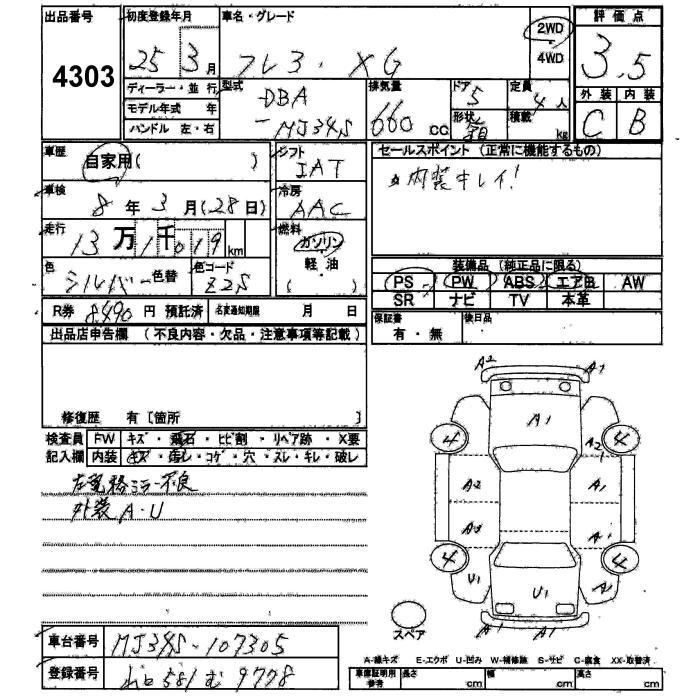 出品番号
4303
初度登録年月
25 3 月
車名・グレード
フレア・XG
2WD
4WD
評価点
3.5
ディーラー・並行
モデル年式 年
ハンドル 左・右
型式
DBA
-MJ34S
排気量
660 cc
ドア
5
形状
定員
4 人
積載
kg
外装 内装
C B
車歴
自家用( )
シフト
IAT
セールスポイント (正常に機能するもの)
内装キレイ!
車検
8 年 3 月(28 日)
冷房
AAC
走行
13 万 1 千 019 km
燃料
ガソリン
軽・油
( )
色
シルバー 色替
色コード
Z2S
装備品 (純正品に限る)
PS PW ABS エアB AW
SR ナビ TV 本革
R券 8,490 円 預託済 名変通知期限 月 日
保証書
有・無
後日品
出品店申告欄 (不良内容・欠品・注意事項等記載)
修復歴 有〔箇所 〕
検査員 FW キズ・飛石・ヒビ割・リペア跡・X要
記入欄 内装 キズ・汚レ・コゲ・穴・スレ・キレ・破レ
左電格ミラー不良
外装A・U
A2 A1
A1
4 4
A2
A2 A1
A2 A1
4 4
U1 U1 A1
A1 A1 A1
スペア
車台番号 MJ34S-107305
登録番号 581 む 9778
A-線キズ E-エクボ U-凹み W-補修跡 S-サビ C-腐食 XX-取替済
車庫証明用参考 長さ cm 幅 cm 高さ cm